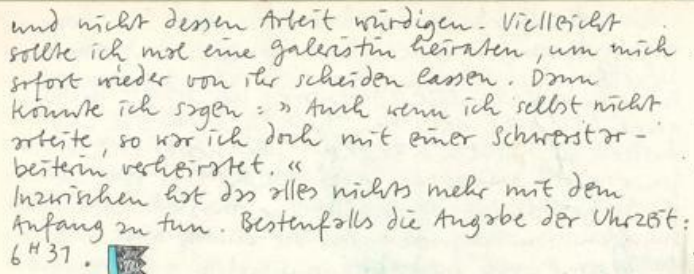 und nicht dessen Arbeit würdigen. Vielleicht
sollte ich mal eine Galeristin heiraten, um mich
sofort wieder von ihr scheiden lassen. Dann
könnte ich sagen: » Auch wenn ich selbst nicht
arbeite, so war ich doch mit einer Schwerstar-
beiterin verheiratet. «
Inzwischen hat das alles nichts mehr mit dem
Anfang zu tun. Bestenfalls die Angabe der Uhrzeit:
6 H 31.